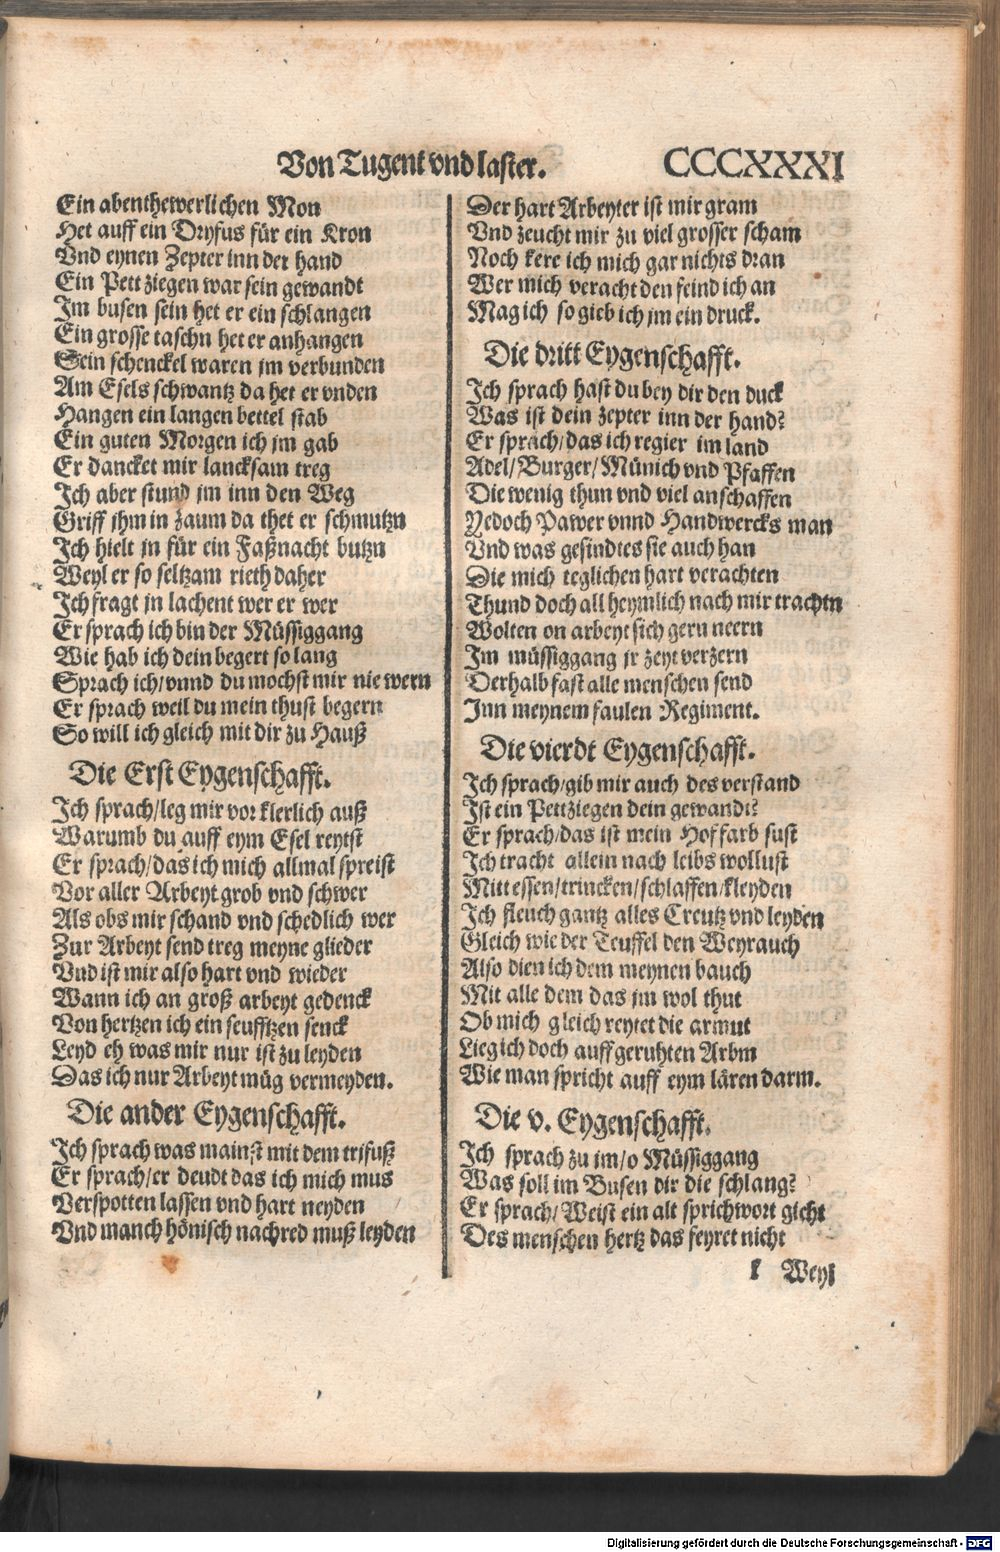 Von Tugent vnd laster. CCCXXXI
Ein abenthewerlichen Mon
Het auff ein Dryfus für ein Kron
Vnd eynen Zepter inn der hand
Ein Pett ziegen war sein gewandt
Im busen sein het er ein schlangen
Ein grosse taschn het er anhangen
Sein schenckel waren jm verbunden
Am Esels schwantz da het er vnden
Hangen ein langen bettel stab
Ein guten Morgen ich jm gab
Er dancket mir lancksam treg
Ich aber stund jm inn den Weg
Griff jhm in zaum da thet er schmutzn
Ich hielt jn für ein Faßnacht butzn
Weyl er so seltzam rieth daher
Ich fragt jn lachent wer er wer
Er sprach ich bin der Müssiggang
Wie hab ich dein begert so lang
Sprach ich/ vnnd du mochst mir nie wern
Er sprach weil du mein thust begern
So will ich gleich mit dir zu Hauß
Die Erst Eygenschafft.
Ich sprach/leg mir vor klerlich auß
Warumb du auff eym Esel reytst
Er sprach/das ich mich allmal spreist
Vor aller Arbeyt grob vnd schwer
Als obs mir schand vnd schedlich wer
Zur Arbeyt send treg meyne glieder
Vnd ist mir also hart vnd wieder
Wann ich an groß arbeyt gedenck
Von hertzen ich ein seufftzen senck
Leyd eh was mir nur ist zu leyden
Das ich nur Arbeyt müg vermeyden.
Die ander Eygenschafft.
Ich sprach was mainst mit dem trifuß
Er sprach/er deudt das ich mich mus
Verspotten lassen vnd hart neyden
Vnd manch hönisch nachred muß leyden
Der hart Arbeyter ist mir gram
Vnd zeucht mir zu viel grosser scham
Noch kere ich mich gar nichts dran
Wer mich veracht den feind ich an
Mag ich so gieb ich jm ein druck.
Die dritt Eygenschafft.
Ich sprach hast du bey dir den duck
Was ist dein zepter inn der hand?
Er sprach/das ich regier im land
Adel/Burger/Münich vnd Pfaffen
Die wenig thun vnd viel anschaffen
Yedoch Pawer vnnd Handwercks man
Vnd was gesindtes sie auch han
Die mich teglichen hart verachten
Thund doch all heymlich nach mir trachtn
Wolten on arbeyt sich gern neern
Im müssiggang jr zeyt verzern
Derhalb fast alle menschen send
Inn meynem faulen Regiment.
Die vierdt Eygenschafft.
Ich sprach/gib mir auch des verstand
Ist ein Pettziegen dein gewandt?
Er sprach/das ist mein Hoffarb sust
Ich tracht allein nach leibs wollust
Mitt essen/trincken/schlaffen/kleyden
Ich fleuch gantz alles Creutz vnd leyden
Gleich wie der Teuffel den Weyrauch
Also dien ich dem meynen bauch
Mit alle dem das jm wol thut
Ob mich gleich reytet die armut
Lieg ich doch auff geruhten Arbm
Wie man spricht auff eym lären darm.
Die v. Eygenschafft.
Ich sprach zu jm/o Müssiggang
Was soll im Busen dir die schlang?
Er sprach/Weist ein alt sprichwort gicht
Des menschen hertz das feyret nicht
Weyl
Digitalisierung gefördert durch die Deutsche Forschungsgemeinschaft - DFG